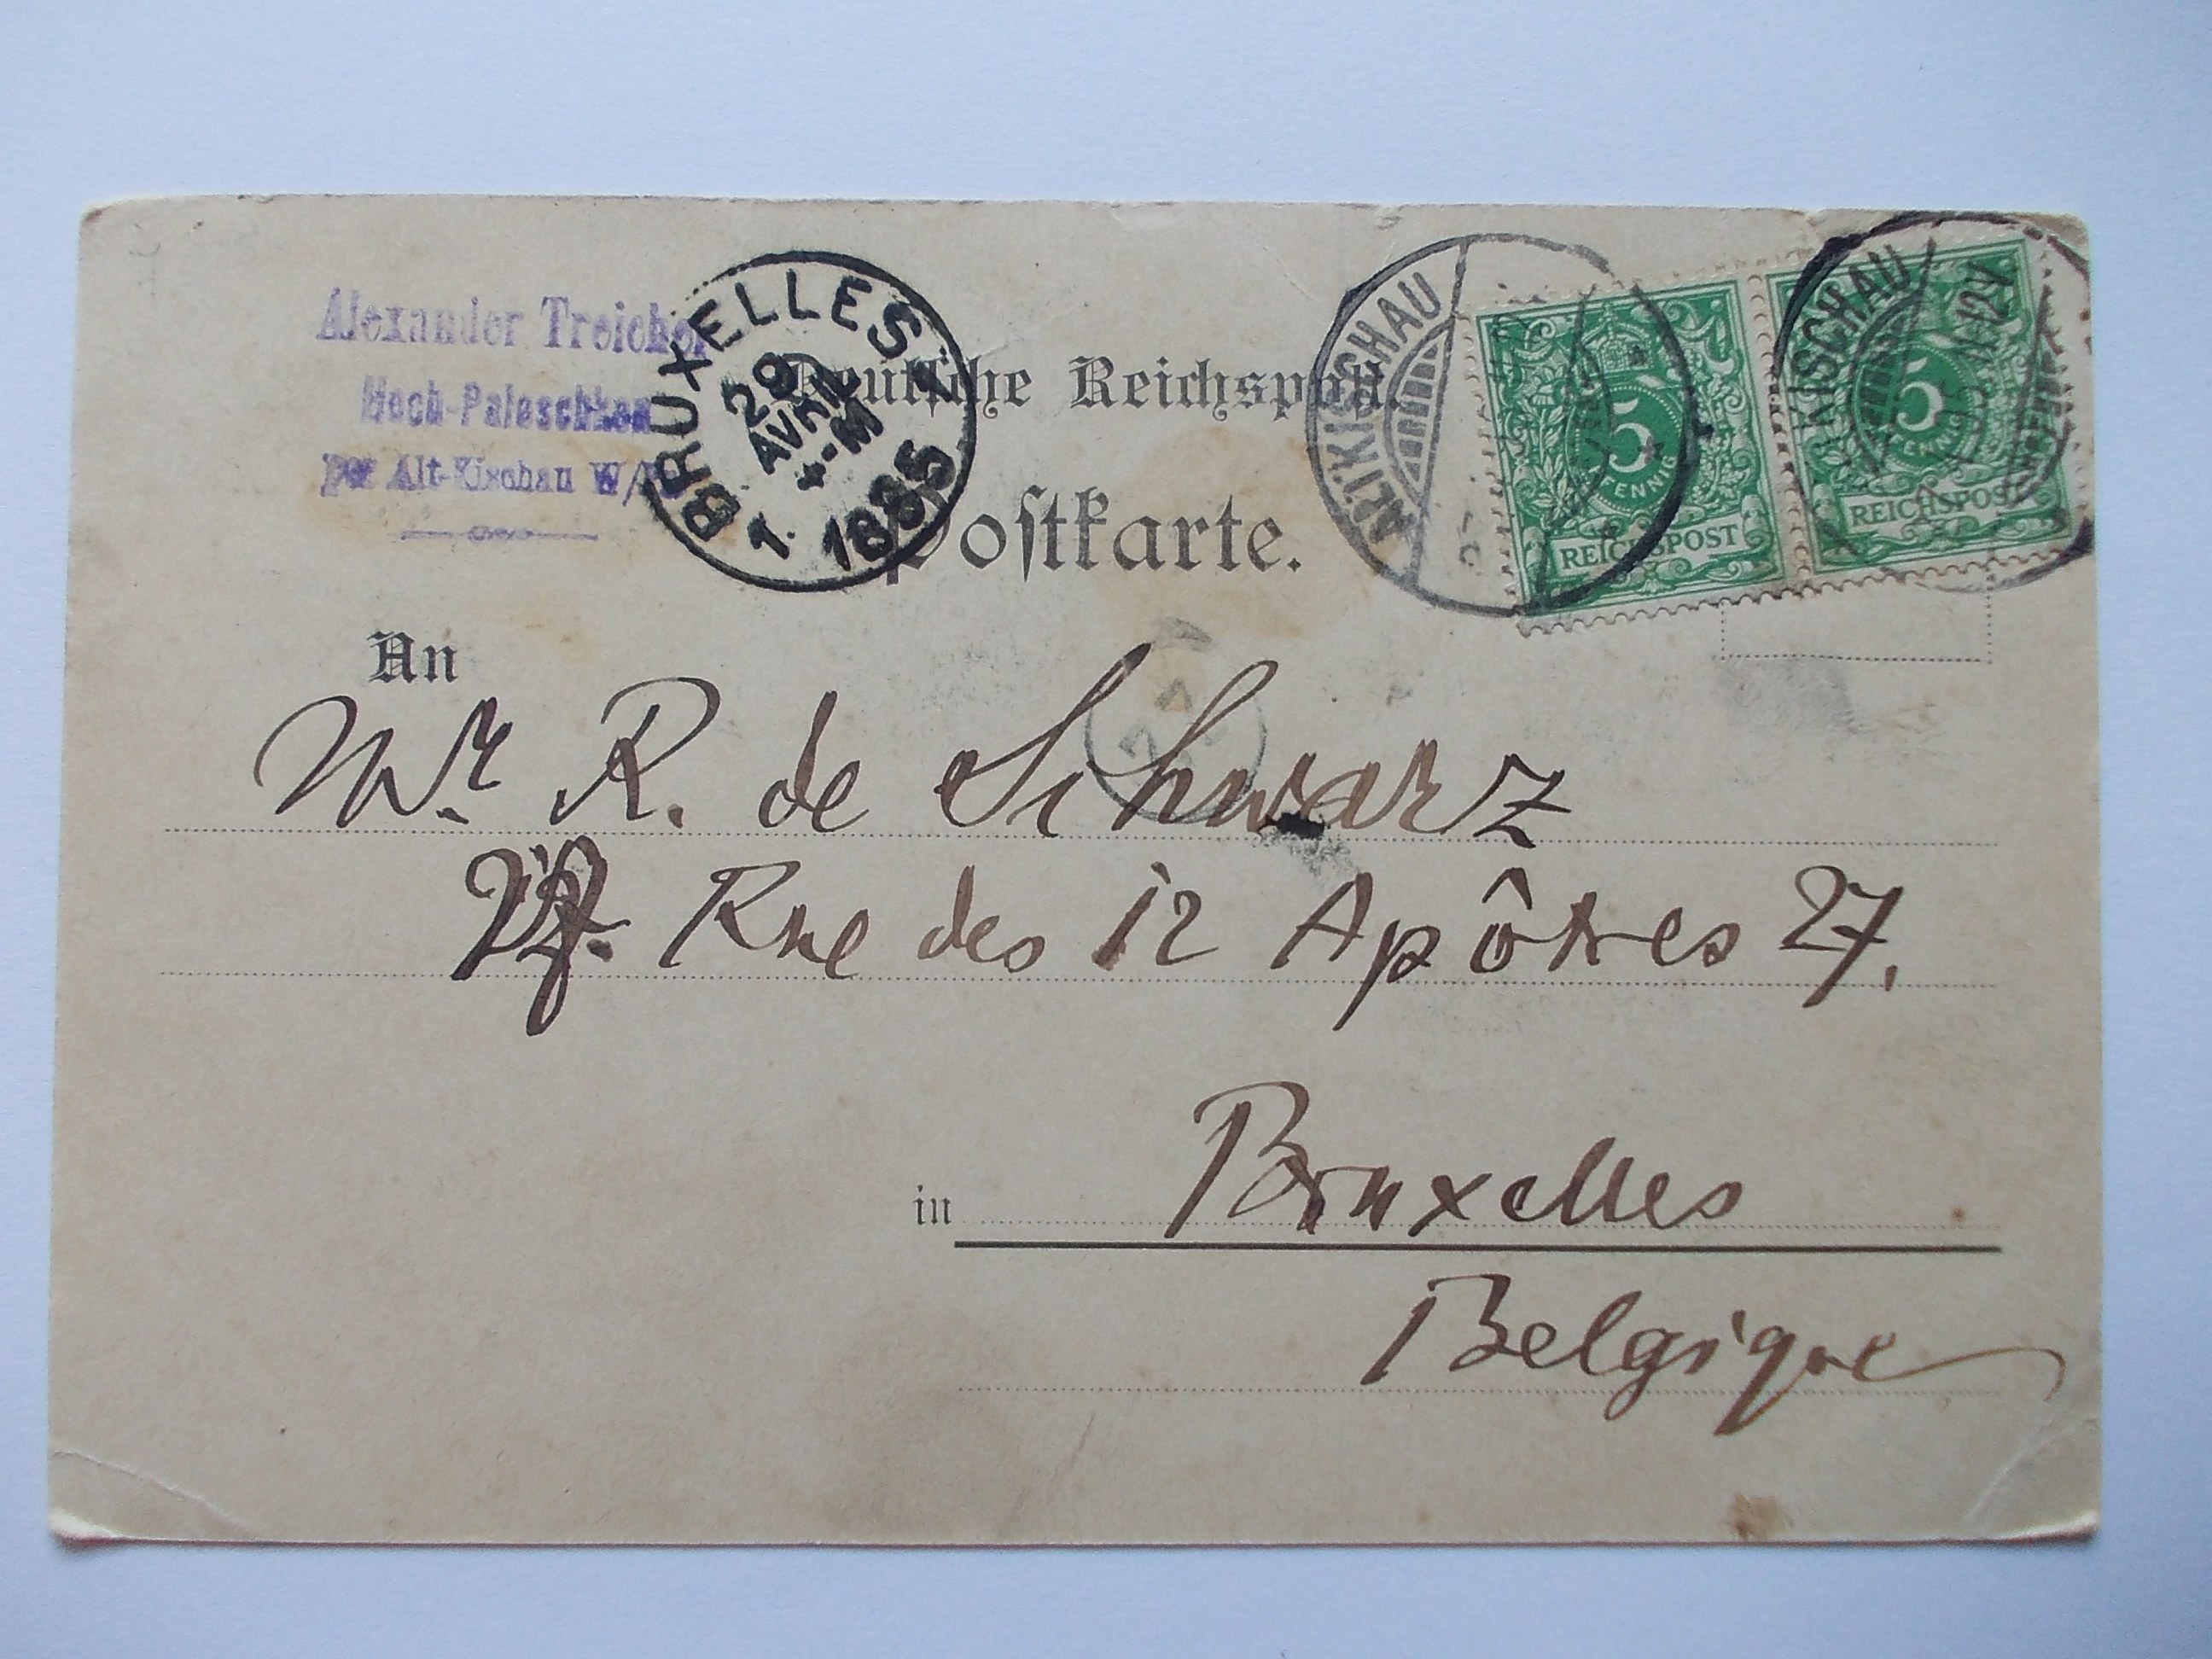 Alexander Treichel
Hoch-Paleschken
per Alt-Kischau W/
BRUXELLES 1
29
AVRIL
4-M
1. 1885
Deutsche Reichspost.
Postkarte.
ALTKISCHAU
5
PFENNIG
REICHSPOST
ALTKISCHAU
5
PFENNIG
REICHSPOST
An
Mr. R. de Schwarz
Rue des 12 Apôtres 27.
in Bruxelles
Belgique